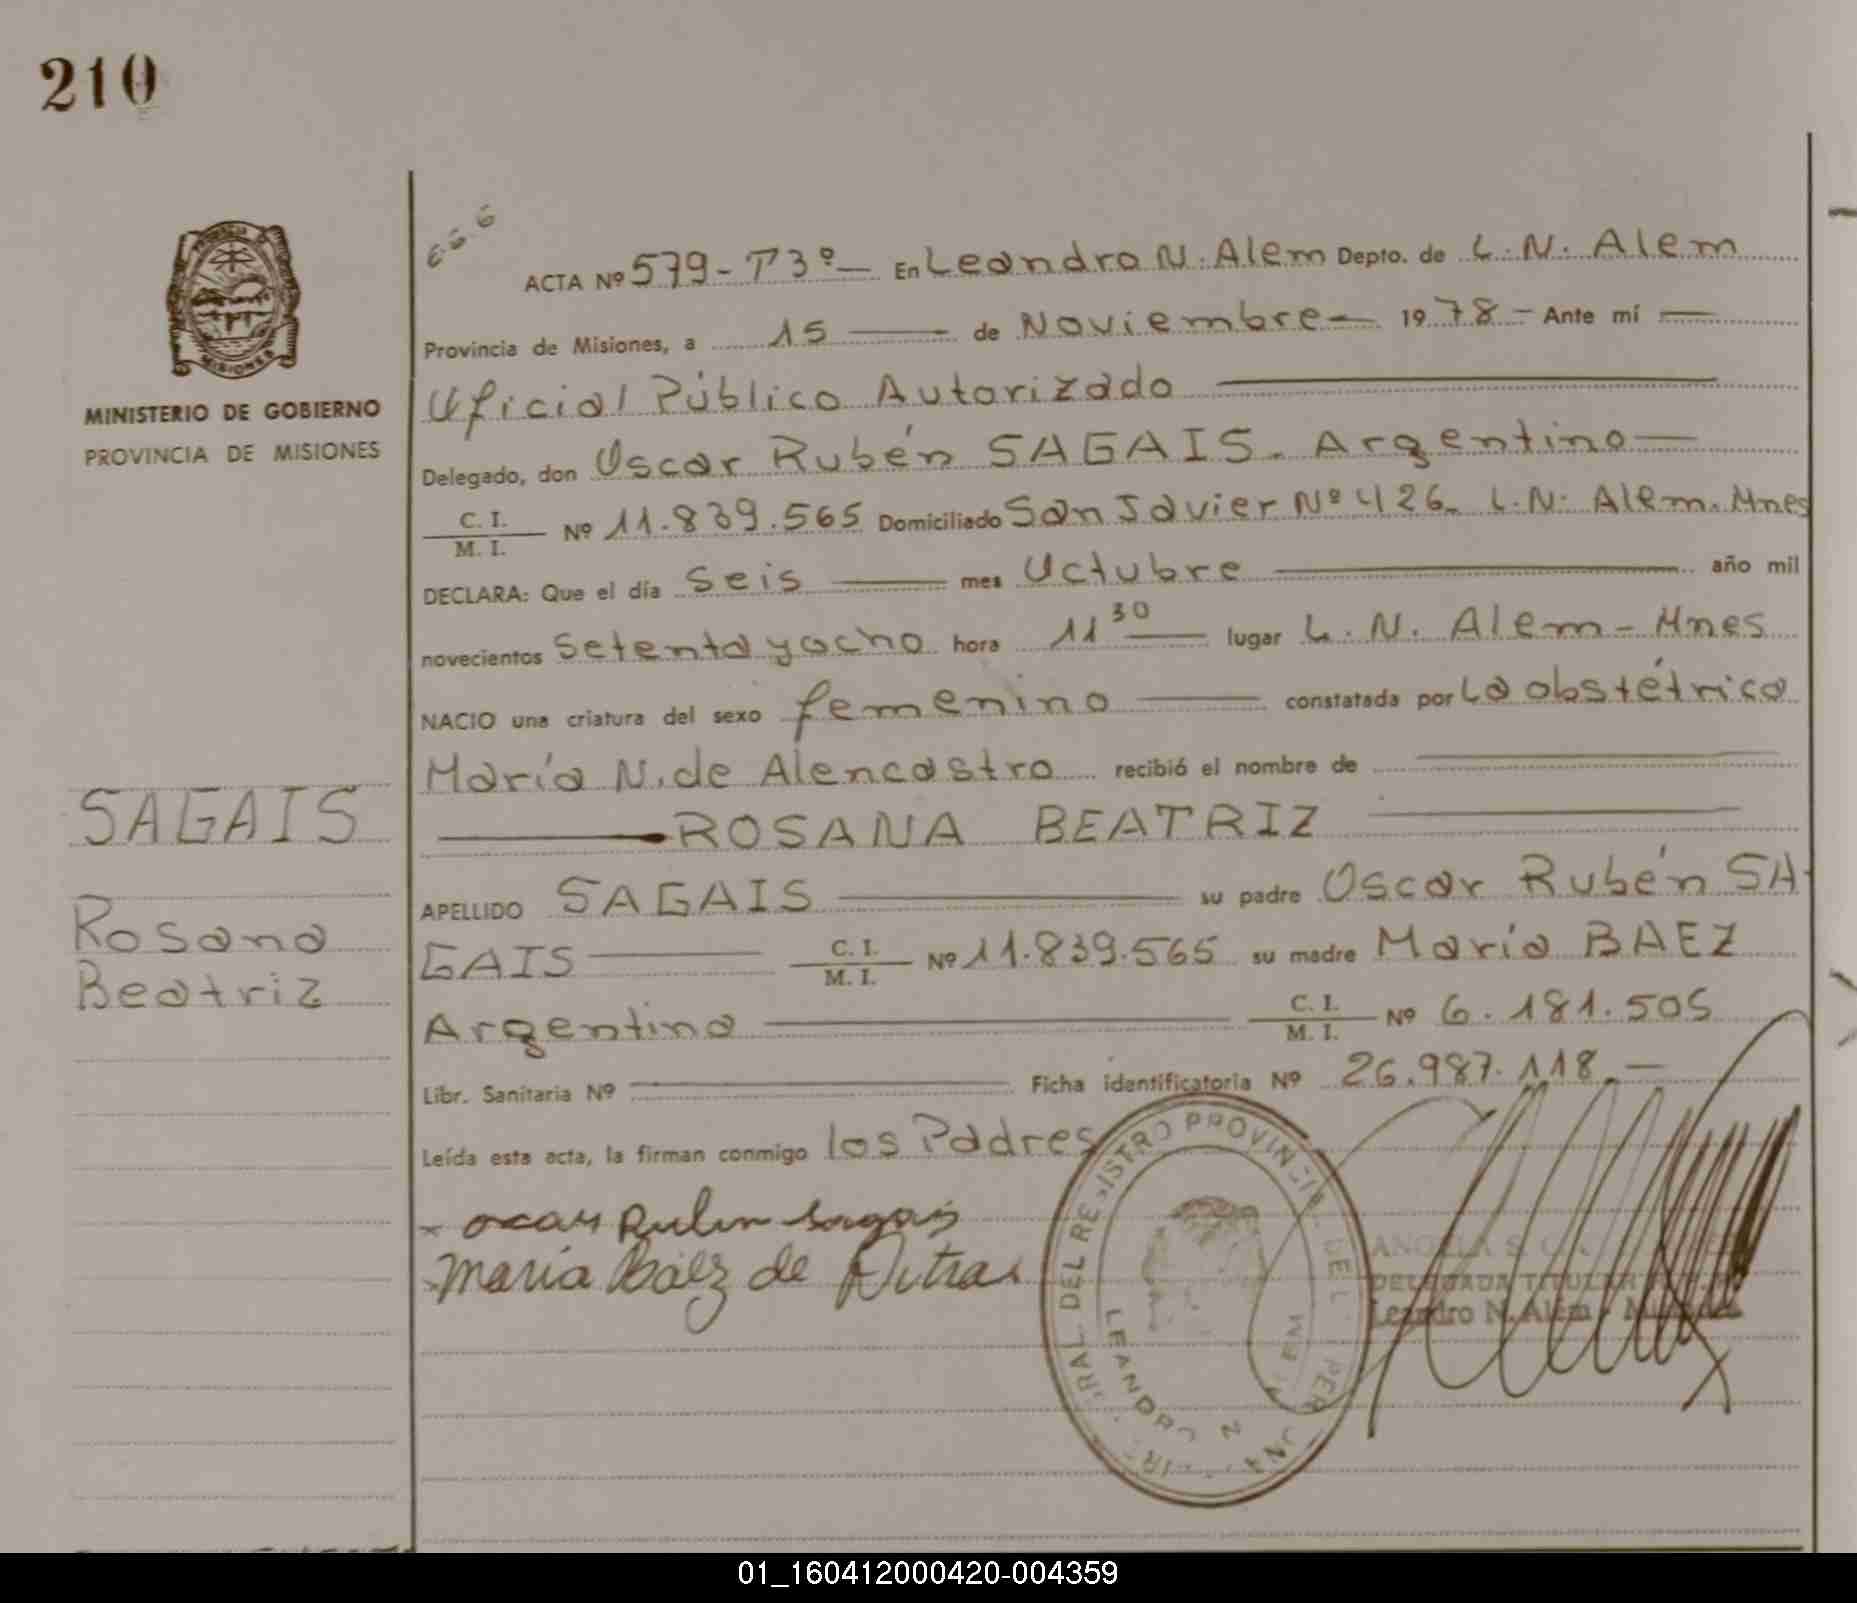 210
PROVINCIA
MISIONES
MINISTERIO DE GOBIERNO
PROVINCIA DE MISIONES
SAGAIS
Rosana
Beatriz
6-6-6
ACTA Nº 579-T3º— En Leandro N. Alem Depto. de L. N. Alem
Provincia de Misiones, a 15 — de Noviembre — 1978 — Ante mí —
Oficial Público Autorizado —
Delegado, don Oscar Rubén SAGAIS. Argentino —
C. I.
M. I. Nº 11.839.565 Domiciliado San Javier Nº 426. L.N. Alem. Mnes
DECLARA: Que el día seis — mes Octubre — año mil
novecientos setenta y ocho hora 11 30 — lugar L. N. Alem - Mnes
NACIO una criatura del sexo femenino — constatada por La obstétrica
María N. de Alencastro recibió el nombre de —
— ROSANA BEATRIZ —
APELLIDO SAGAIS — su padre Oscar Rubén SA-
GAIS — C. I.
M. I. Nº 11.839.565 su madre María BAEZ
Argentina — C. I.
M. I. Nº 6.181.505
Libr. Sanitaria Nº — Ficha identificatoria Nº 26.987.118.—
Leída esta acta, la firman conmigo los Padres
x oscar Ruben Sagais
María Báez de
DEL REGISTRO PROVINCIAL DEL
LEANDRO N. ALEM
DELEGADA TITULAR
Leandro N. Alem -
01_160412000420-004359